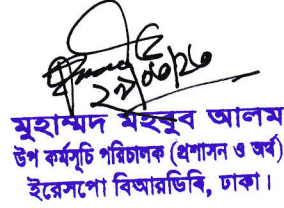 ২৮/০৫/২৩
মুহাম্মদ মাহবুব আলম
উপ কর্মসূচি পরিচালক (প্রশাসন ও অর্থ)
ইরেসপো বিআরডিবি, ঢাকা।